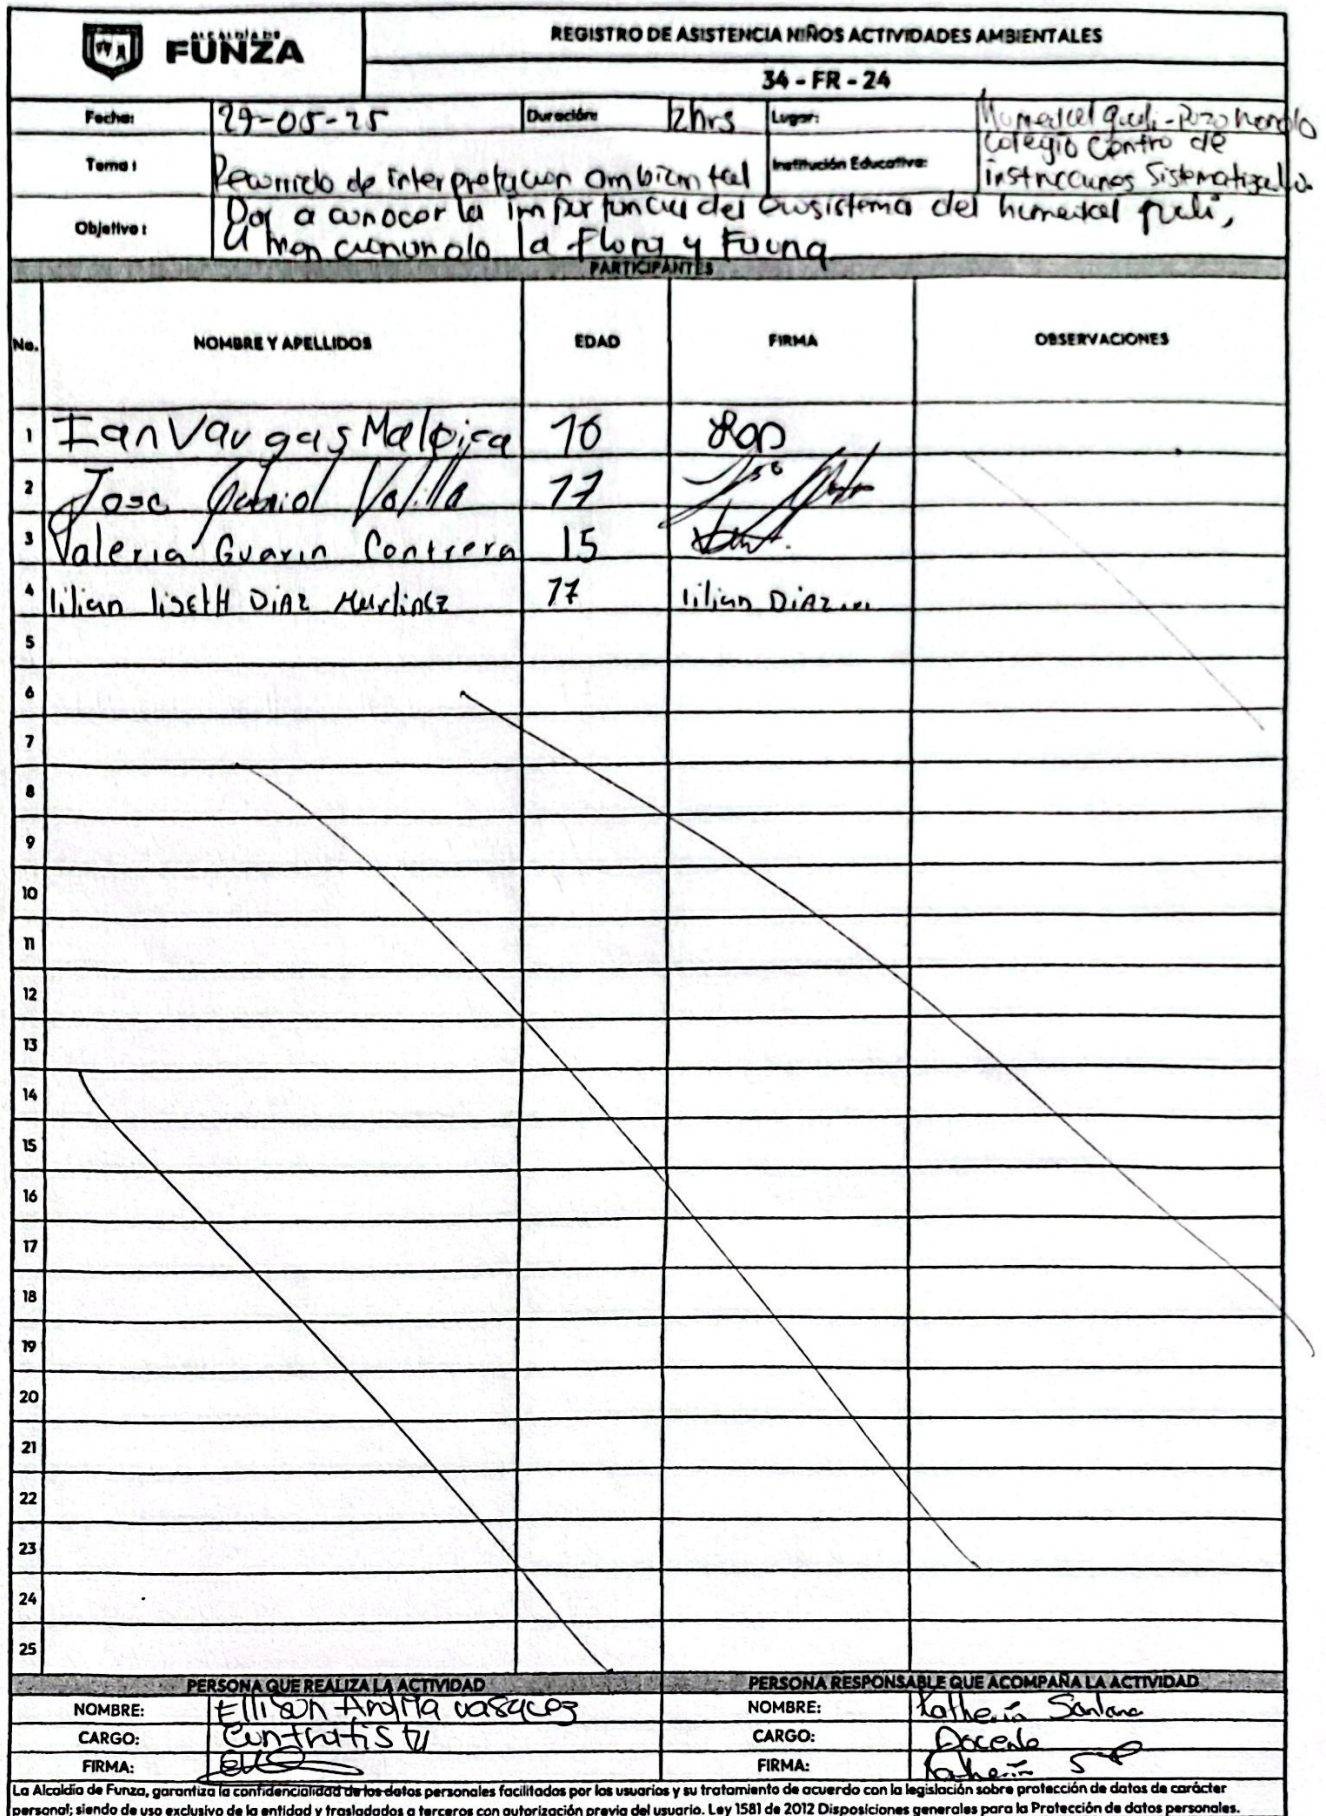 ALCALDÍA DE
FUNZA
REGISTRO DE ASISTENCIA NIÑOS ACTIVIDADES AMBIENTALES
34 - FR - 24
Fecha: 29-05-25 Duración: 2hrs Lugar: Humedal guali-Pozo hondo
Tema: Recorrido de interpretacion ambiental Institución Educativa: Colegio Centro de
instrucciones Sistematizada
Objetivo: Dar a conocer la importancia del ecosistema del humedal guali,
la Flora y Fauna
PARTICIPANTES
No. NOMBRE Y APELLIDOS EDAD FIRMA OBSERVACIONES
1 Ian Vargas Malpica 16
2 Jose Gabriel 17 Jose
3 Valeria Guarin Contrera 15
4 lilian lisetH DiAz Martinez 17 lilian DiAz
5
6
7
8
9
10
11
12
13
14
15
16
17
18
19
20
21
22
23
24
25
PERSONA QUE REALIZA LA ACTIVIDAD PERSONA RESPONSABLE QUE ACOMPAÑA LA ACTIVIDAD
NOMBRE: Ellison Andrea vasquez NOMBRE: Katherin Santana
CARGO: Contratista CARGO: Docente
FIRMA: FIRMA: Katherin
La Alcaldía de Funza, garantiza la confidencialidad de los datos personales facilitados por los usuarios y su tratamiento de acuerdo con la legislación sobre protección de datos de carácter
personal; siendo de uso exclusivo de la entidad y trasladados a terceros con autorización previa del usuario. Ley 1581 de 2012 Disposiciones generales para la Protección de datos personales.